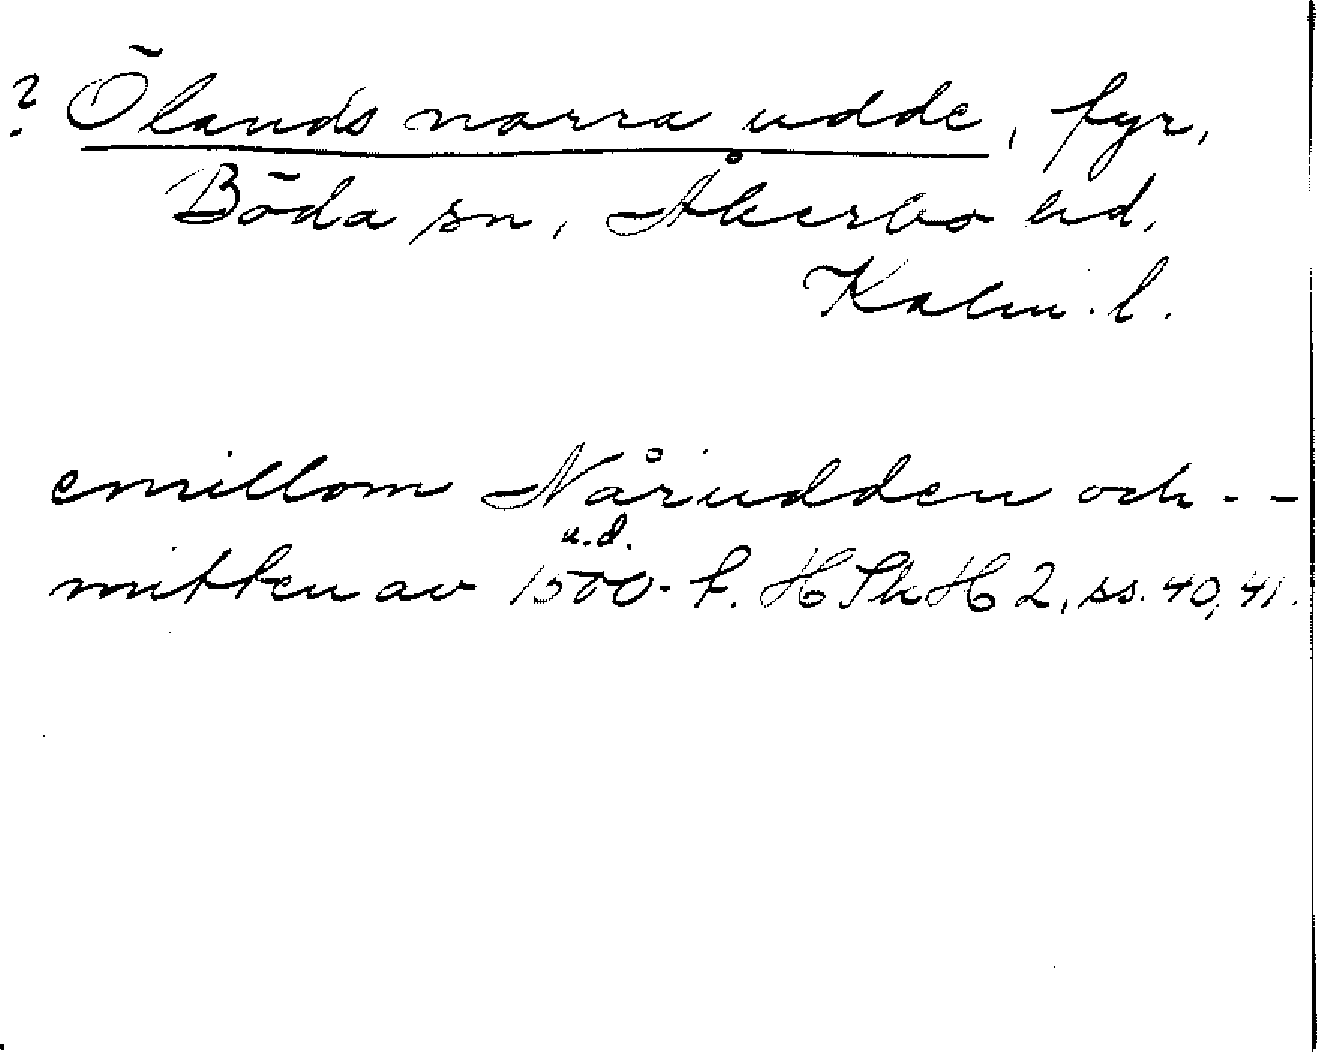 ? Ölands norra udde, fyr,
Böda sn, Åkerbo hd,
Kalm. l.
emillom Nårudden och --
u.d.
mitten av 1500-t. HSH 2, ss. 40, 41.